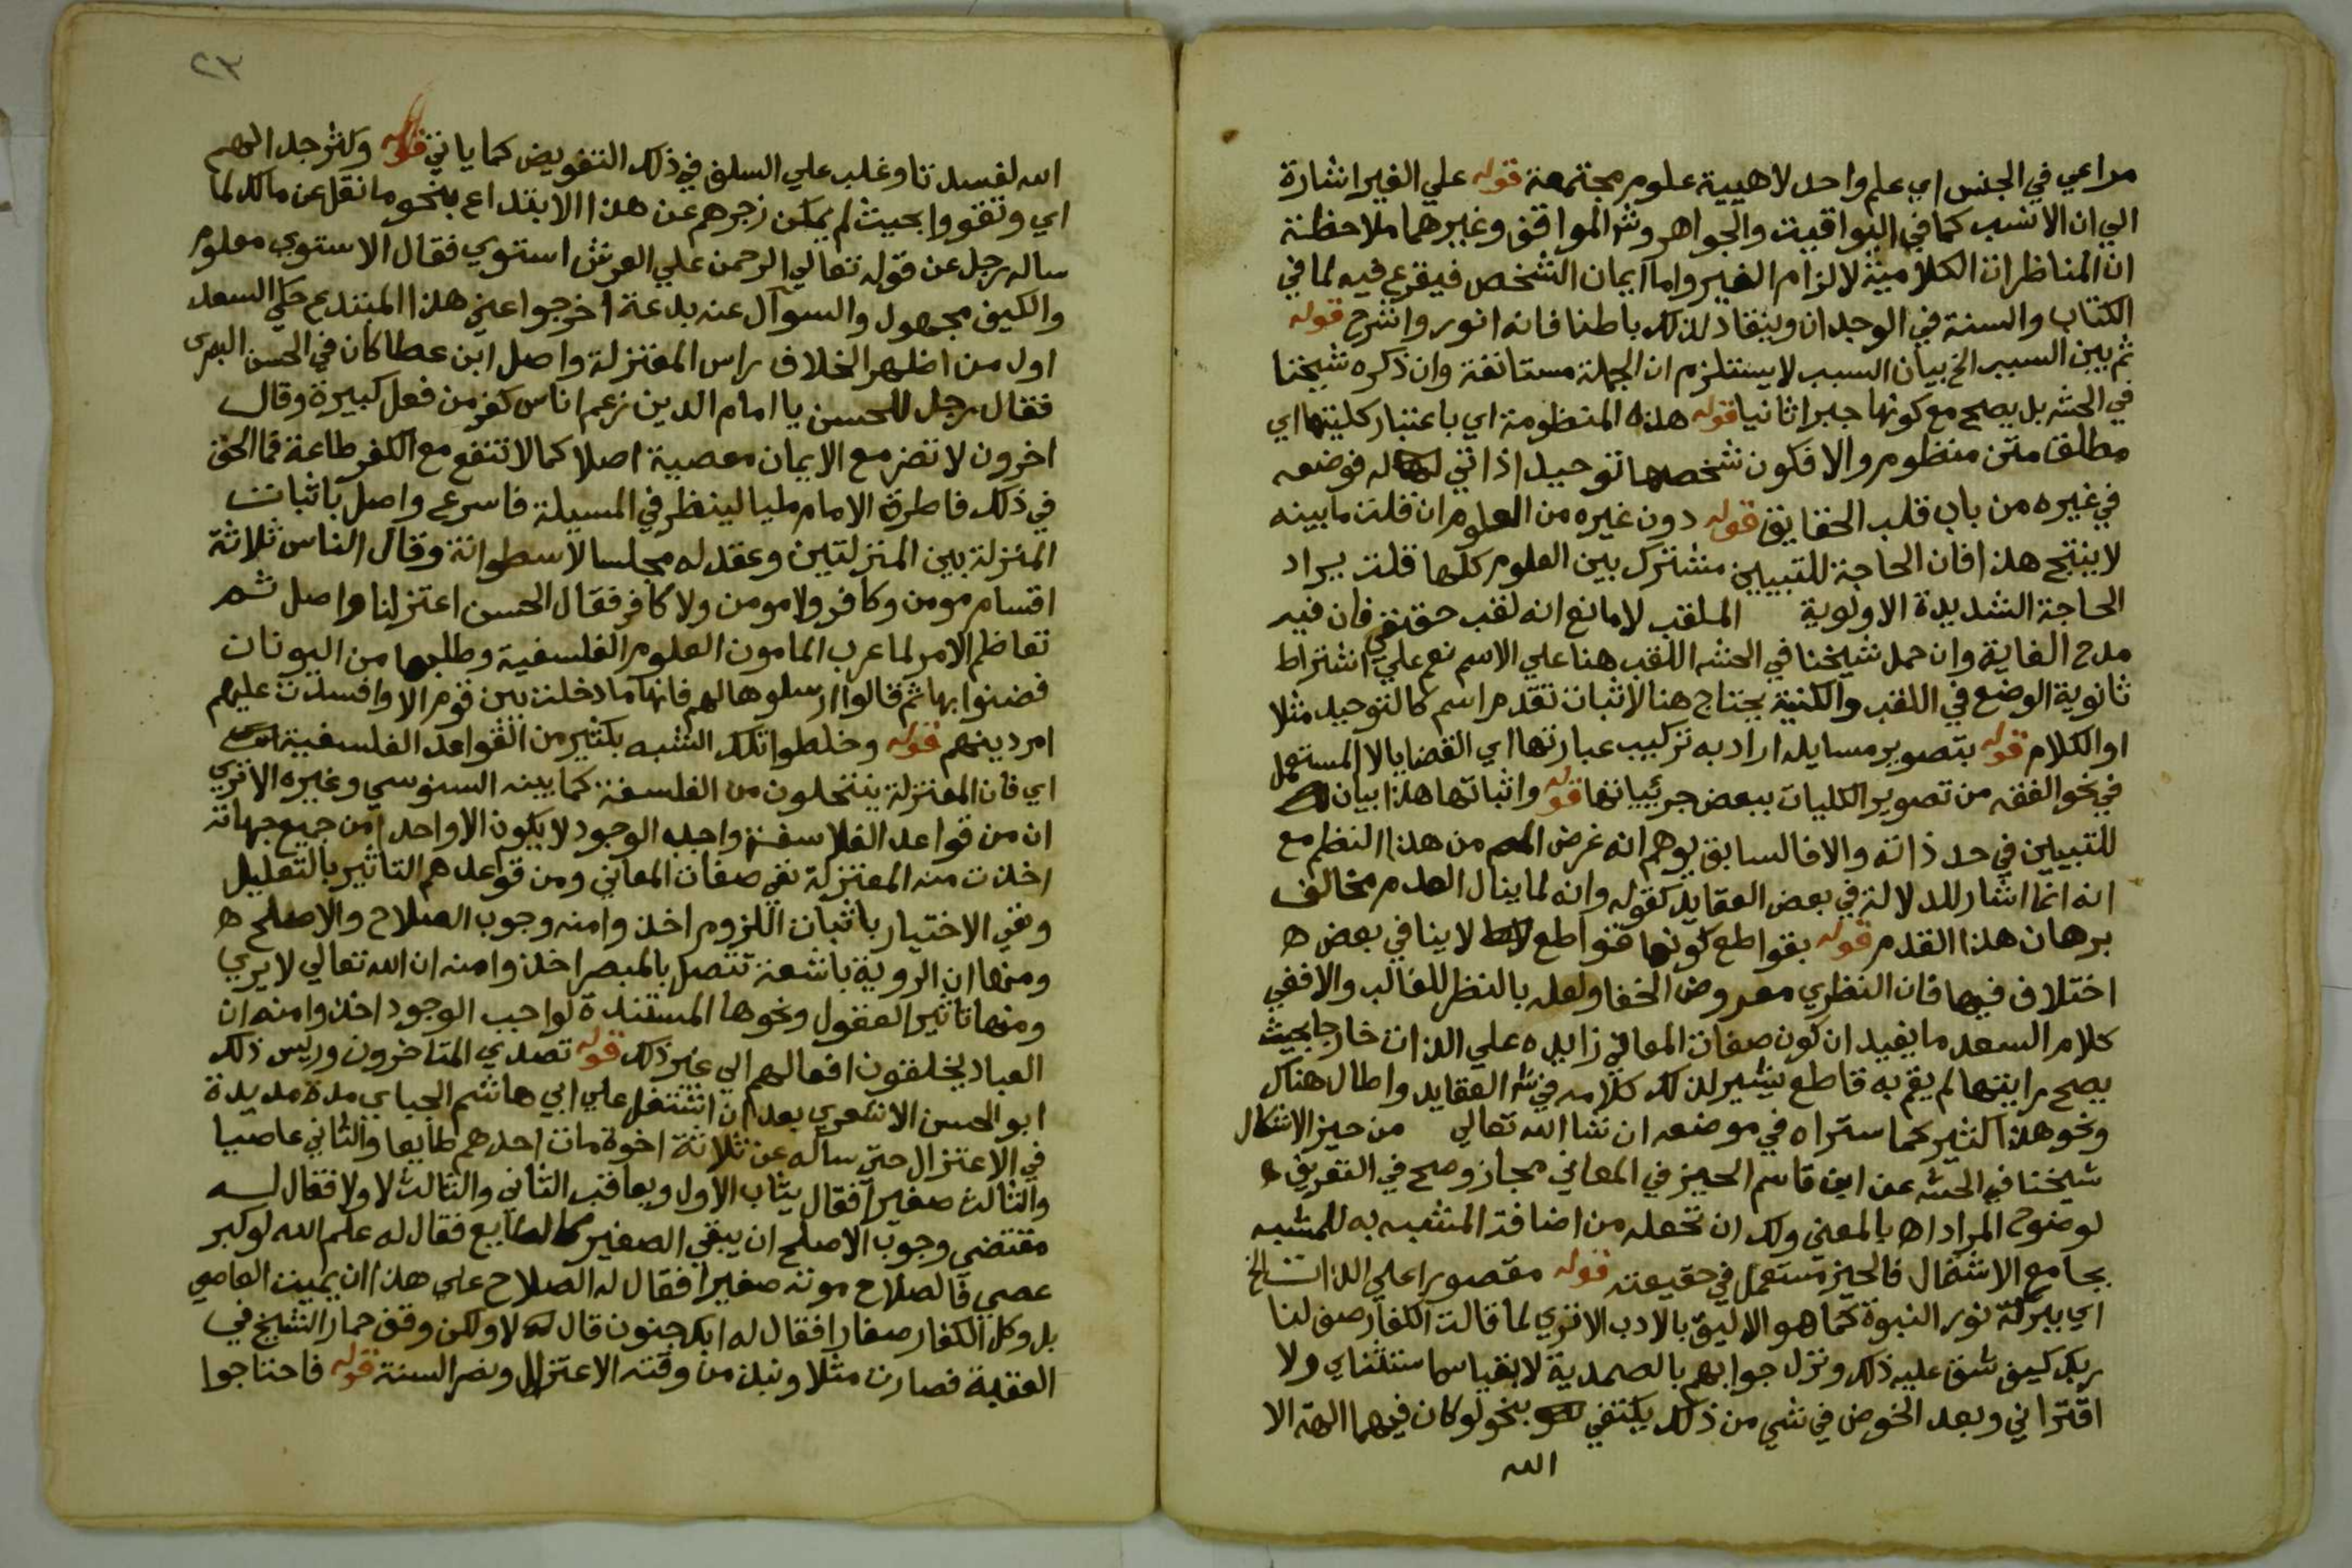 مراعي في الجنس اي علم واحد لا هيية علوم مجتمعة قوله علي الغير اشارة
الي ان الانسب كما في اليواقيت والجواهر وش المواقف وغيرهما ملاحظة
ان المناظرات الكلامية لالزام الغير واما ايمان الشخص فيقرع فيه لما في
الكتاب والسنة في الوجدان وينقاد لذلك باطنا فانه انور واشرح قوله
ثم بين السبب الخ بيان السبب لا يستلزم ان الجملة مستانفة وان ذكره شيخنا
في الحشه بل يصح مع كونها خبرا ثانيا قوله هذه المنظومة اي باعتبار كليتها اي
مطلق متن منظوم والا فكون شخصها توحيد اذاتي له فوضعه
في غيره من باب قلب الحقايق قوله دون غيره من العلوم ان قلت ما بينه
لا ينتج هذا فان الحاجة للتبيين مشترك بين العلوم كلها قلت يراد
الحاجة الشديدة الاولوية الملقب لا مانع انه لقب حقيقي فان فيه
مدح الغاية وان حمل شيخنا في الحشه اللقب هنا علي الاسم نعم علي اشتراط
ثانوية الوضع في اللقب والكنية يحتاج هنا لاثبات تقدم اسم كالتوحيد مثلا
او الكلام قوله بتصوير مسايله اراد به تركيب عبارتها اي القضايا لا المستعمل
في نحو الفقه من تصوير الكليات ببعض جزئياتها قوله واثباتها هذا بيان
للتبيين في حد ذاته والا فالسابق يوهم انه غرض المص من هذا النظم مع
انه انما اشار للدلالة في بعض العقايد كقوله وانه لما ينال العدم مخالف
برهان هذا القدم قوله بقواطع كونها قواطع لا ينافي بعض
اختلاف فيها فان النظري معروض الخفا ولعله بالنظر للغالب والا ففي
كلام السعد ما يفيد ان كون صفات المعاني زايده علي الذات خارجا بحيث
يصح مرايتها لم يقم به قاطع يشير لذلك كلامه في ش العقايد واطال هناك
ونحو هذا كثير كما ستراه في موضعه ان شا الله تعالي من حيز الاشكال
شيخنا في الحشه عن ابن قاسم الحيز في المعاني مجاز وصح في التعريف
لوضوح المراد اه بالمعني ولك ان تجعله من اضافة المشبه به للمشبه
بجامع الاشتمال فالحيز مستعمل في حقيقته قوله مقصورا علي الذات الخ
اي ببركة نور النبوة كما هو الاليق بالادب الا تري لما قالت الكفار صف لنا
ربك كيف شق عليه ذلك ونزل جوابهم بالصمدية لا بقياس استثناي ولا
اقتراني وبعد الخوض في شي من ذلك يكتفي بنحو لو كان فيهما الهة الا
الله
٢٣
الله لفسدتا وغلب علي السلف في ذلك التفويض كما ياتي قوله وكثر جدالهم
اي وتقووا بحيث لم يمكن زجرهم عن هذا الابتداع بنحو ما نقل عن مالك لما
ساله رجل عن قوله تعالي الرحمن علي العرش استوي فقال الاستوي معلوم
والكيف مجهول والسوآل عنه بدعة اخرجوا عني هذا المبتدع حكي السعد
اول من اظهر الخلاف راس المعتزلة واصل ابن عطا كان في الحسن البصرى
فقال رجل للحسن يا امام الدين زعم اناس كفر من فعل كبيرة وقال
اخرون لا تضر مع الايمان معصية اصلا كما لا تنفع مع الكفر طاعة فما الحق
في ذلك فاطرق الامام مليا لينظر في المسيلة فاسرع واصل باثبات
المنزلة بين المنزلتين وعقد له مجلسا لاسطوانة وقال الناس ثلاثة
اقسام مومن وكافر ولا مومن ولا كافر فقال الحسن اعتزلنا واصل ثم
تعاظم الامر لما عرب المامون العلوم الفلسفية وطلبها من اليونان
فضنوا بها ثم قالوا ارسلوها لهم فانها ما دخلت بين قوم الا وافسدت عليهم
امر دينهم قوله وخلطوا تلك الشبه بكثير من القواعد الفلسفية
اي فان المعتزلة ينتحلون من الفلسفة كما بينه السنوسي وغيره الا تري
ان من قواعد الفلاسفة واجب الوجود لا يكون الا واحدا من جميع جهاته
اخذت منه المعتزلة نفي صفات المعاني ومن قواعدهم التاثير بالتعليل
ونفي الاختيار باثبات اللزوم اخذوا منه وجوب الصلاح والاصلح
ومنها ان الروية باشعة تتصل بالمبصر اخذوا منه ان الله تعالي لا يري
ومنها تاثير العقول ونحوها المستندة لواجب الوجود اخذوا منه ان
العباد يخلقون افعالهم الي غير ذلك قوله تصدي المتاخرون وريس ذلك
ابو الحسن الاشعري بعد ان اشتغل علي ابي هاشم الجباي مدة مديدة
في الاعتزال حتي ساله عن ثلاثة اخوة مات احدهم طايعا والثاني عاصيا
والثالث صغيرا فقال يثاب الاول ويعاقب الثاني والثالث لا ولا فقال له
مقتضي وجوب الاصلح ان يبقي الصغير كالطايع فقال له علم الله لو كبر
عصي فالصلاح موته صغيرا فقال له الصلاح علي هذا ان يميت العاصي
بل وكل الكفار صغارا فقال له ابك جنون قال له لا ولكن وقف حمار الشيخ في
العقبة فصارت مثلا ونبذ من وقته الاعتزال ونصر السنة قوله فاحتاجوا